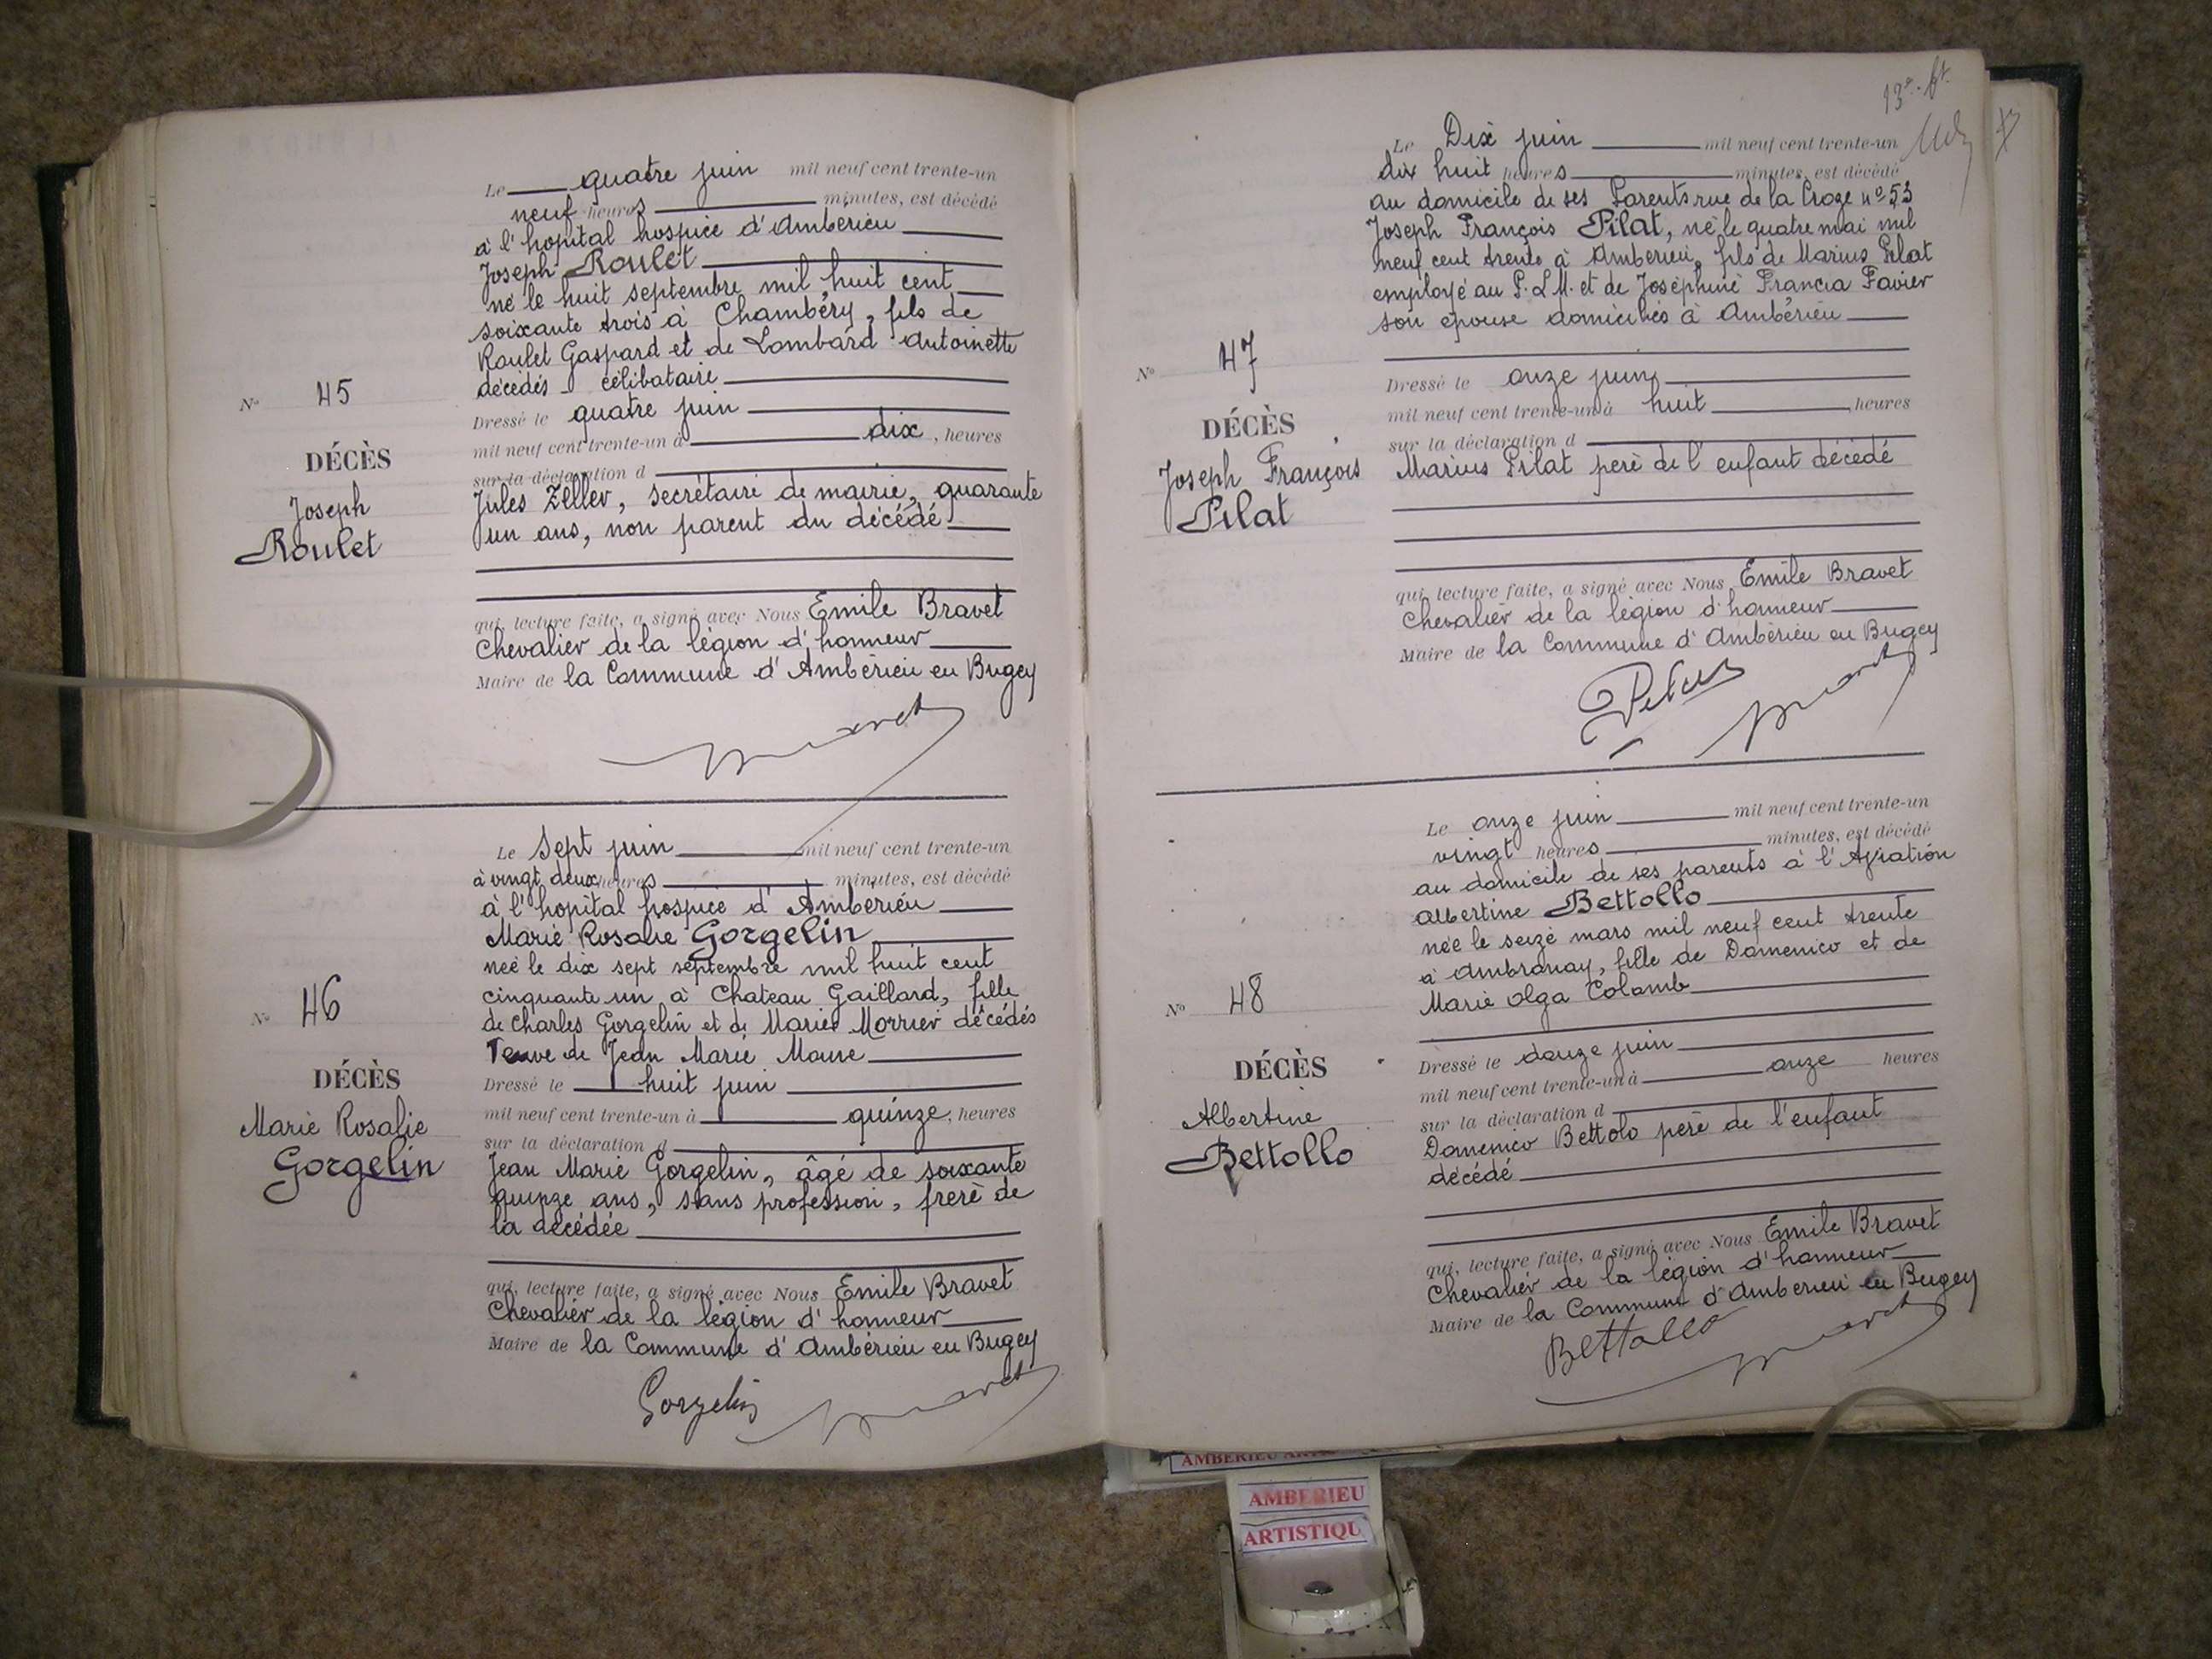 Le quatre juin mil neuf cent trente-un
neuf heures minutes, est décédé
à l'hopital hospice d'Ambérieu
Joseph Roulet
né le huit septembre mil huit cent
soixante trois à Chambéry, fils de
Roulet Gaspard et de Lombard Antoinette
décédés célibataire
Dressé le quatre juin
mil neuf cent trente-un à dix, heures
sur la déclaration d
Jules Zeller, secrétaire de mairie, quarante
un ans, non parent du décédé
qui, lecture faite, a signé avec Nous Emile Bravet
Chevalier de la légion d'honneur
Maire de la Commune d'Ambérieu en Bugey
Bravet
No 45
DÉCÈS
Joseph
Roulet
Le Sept juin mil neuf cent trente-un
à vingt deux heures minutes, est décédé
à l'hopital hospice d'Ambérieu
Marie Rosalie Gorgelin
neé le dix sept septembre mil huit cent
cinquante un à Chateau Gaillard, fille
de Charles Gorgelin et de Marie Morrier décédés
Veuve de Jean Marie Maure
Dressé le huit juin
mil neuf cent trente-un à quinze, heures
sur la déclaration d
Jean Marie Gorgelin, âgé de soixante
quinze ans, sans profession, frère de
la décédée
qui, lecture faite, a signé avec Nous Emile Bravet
Chevalier de la légion d'honneur
Maire de la Commune d'Ambérieu en Bugey
Gorgelin Bravet
No 46
DÉCÈS
Marie Rosalie
Gorgelin
Le Dix juin mil neuf cent trente-un
dix huit heures minutes, est décédé
au domicile de ses Parents rue de la Croze no 53
Joseph François Pilat, né le quatre mai mil
neuf cent trente à Ambérieu, fils de Marius Pilat
employé au P.L.M. et de Joséphine Francia Favier
son épouse domiciliés à Ambérieu
Dressé le onze juin
mil neuf cent trente-un à huit heures
sur la déclaration d
Marius Pilat père de l'enfant décédé
qui, lecture faite, a signé avec Nous Emile Bravet
Chevalier de la légion d'honneur
Maire de la Commune d'Ambérieu en Bugey
Bravet
No 47
DÉCÈS
Joseph François
Pilat
Le onze juin mil neuf cent trente-un
vingt heures minutes, est décédé
au domicile de ses parents à l'Aviation
Albertine Bettollo
née le seize mars mil neuf cent trente
à Ambronay, fille de Domenico et de
Marie Olga Colomb
Dressé le douze juin
mil neuf cent trente-un à onze heures
sur la déclaration d
Domenico Bettolo père de l'enfant
décédé
qui, lecture faite, a signé avec Nous Emile Bravet
Chevalier de la légion d'honneur
Maire de la Commune d'Ambérieu en Bugey
Bettollo Bravet
No 48
DÉCÈS
Albertine
Bettollo
AMBERIEU
AMBERIEU
ARTISTIQU